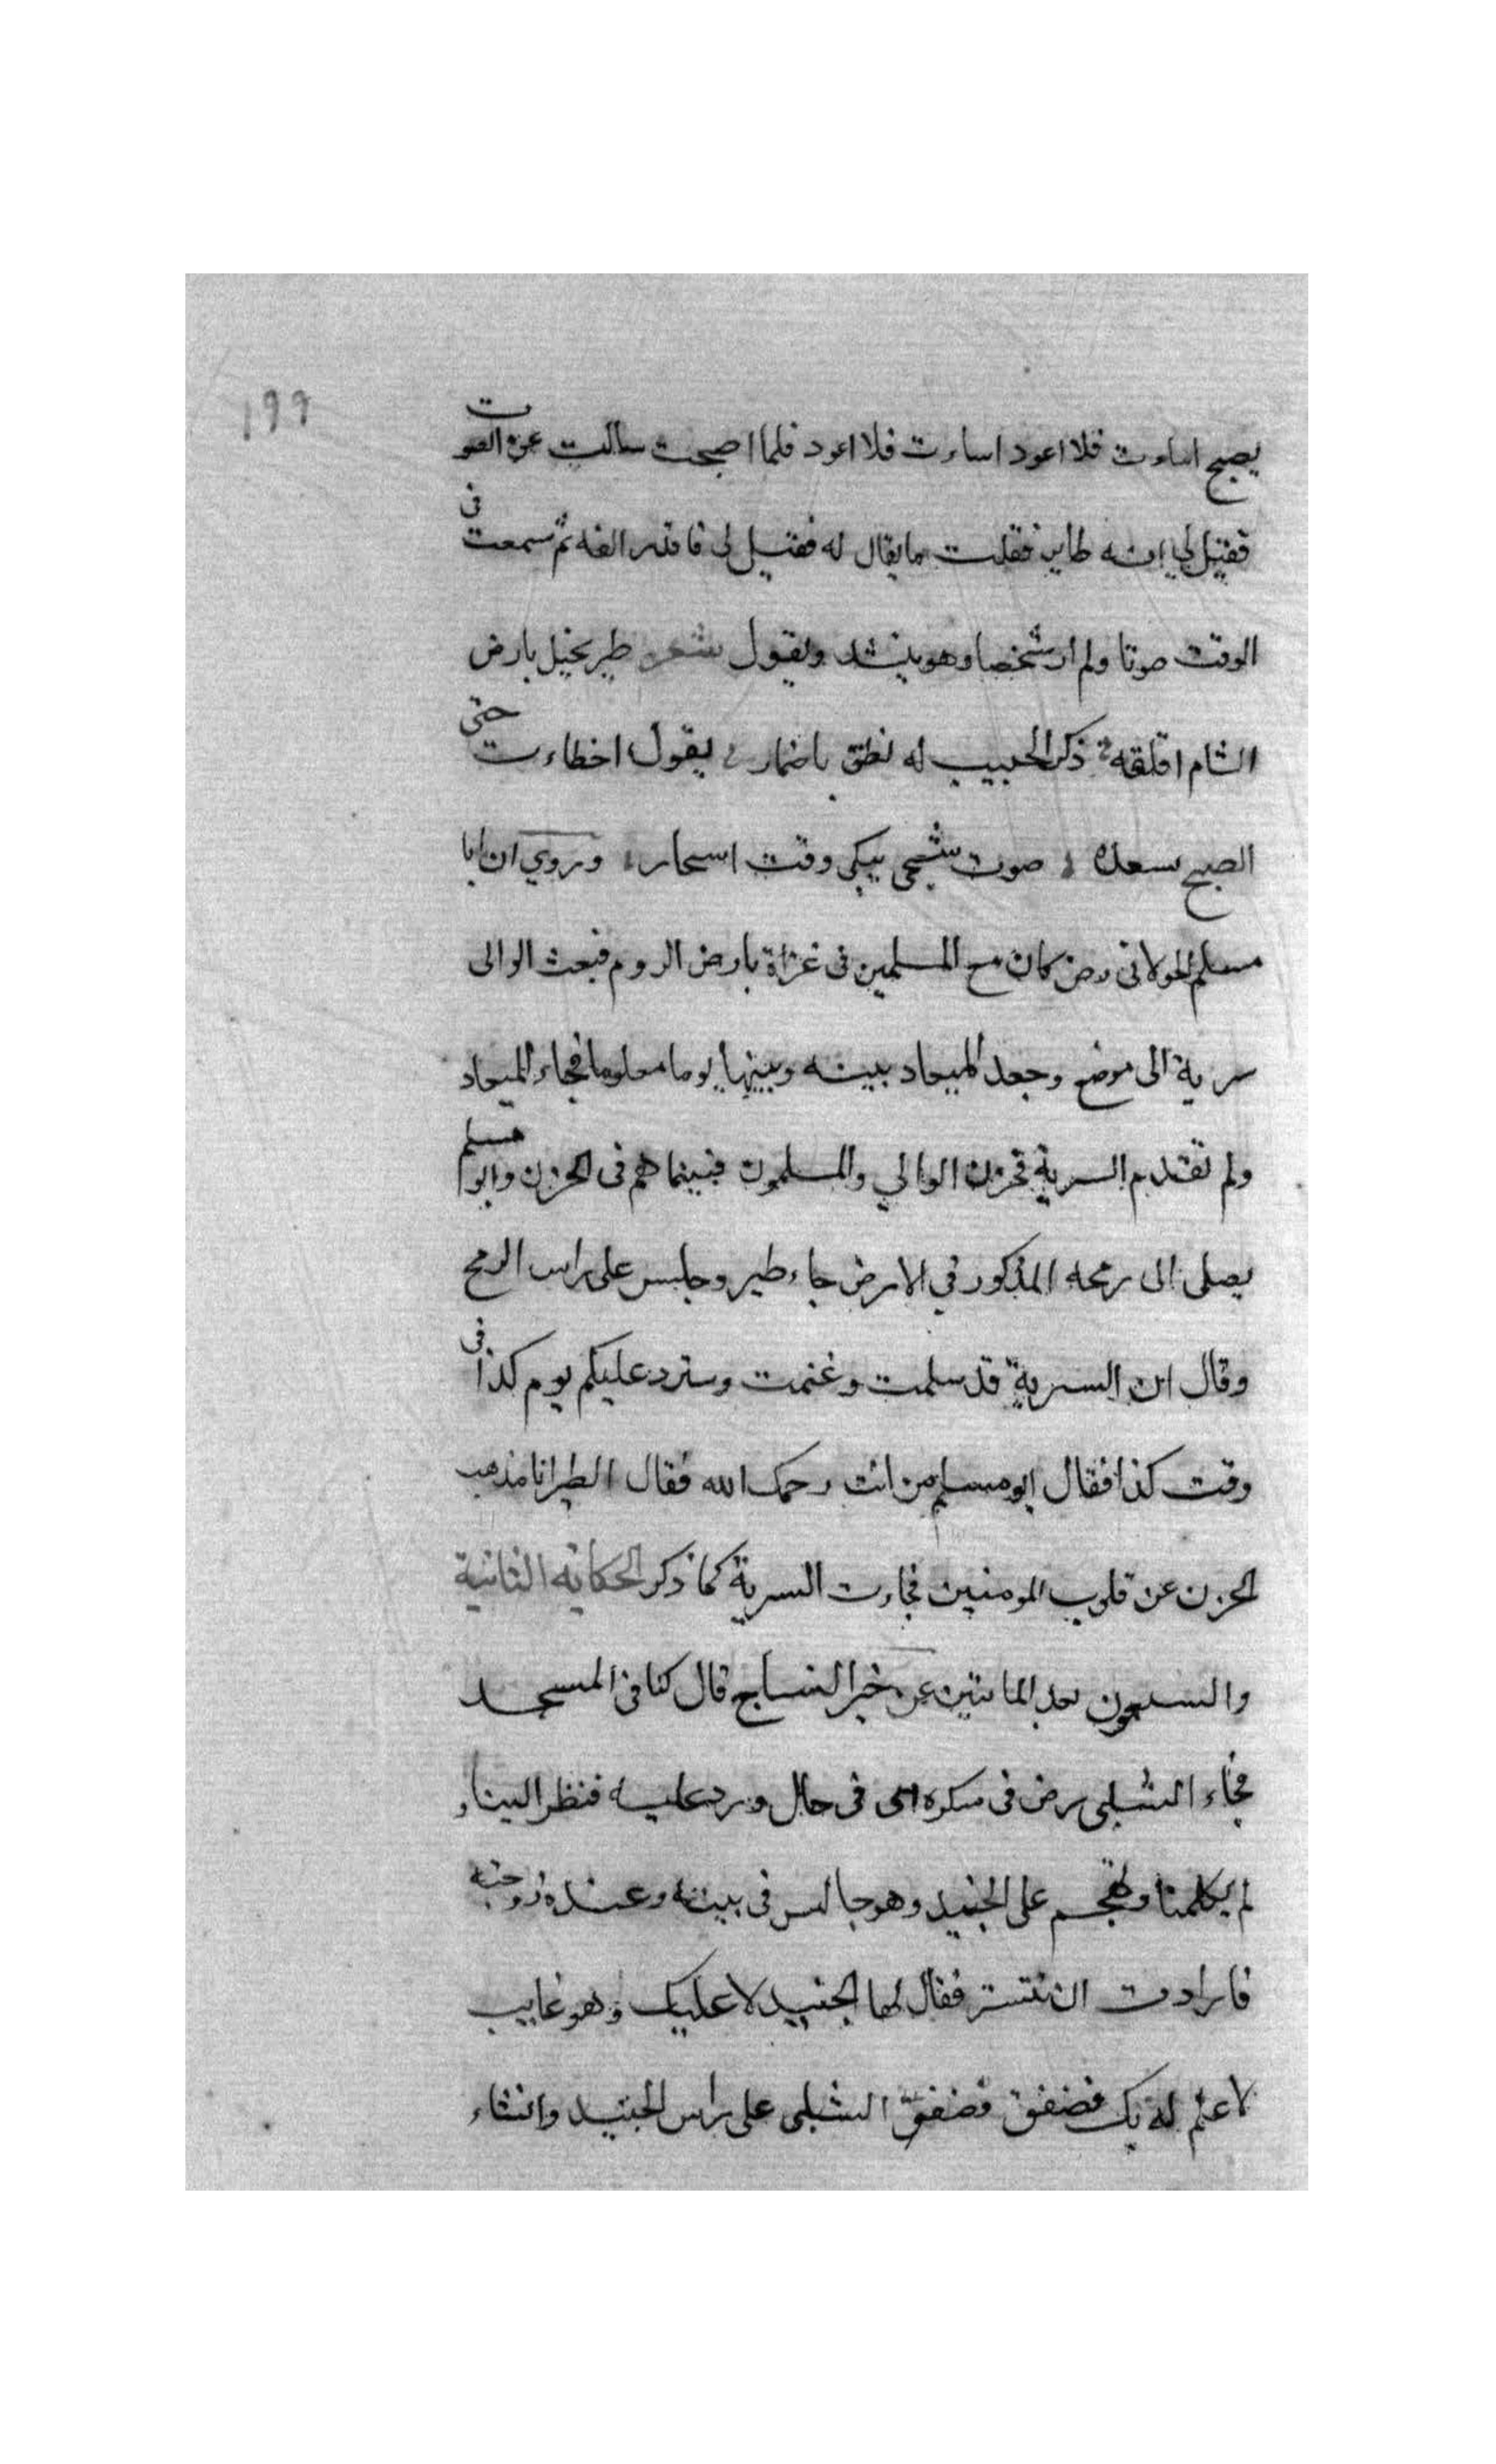 ١٩٩
يصيح اساءت فلا اعود اساءت فلا اعود فلما اصبحت سالت عن الصوت
فقيل لي انه طاير فقلت ما يقال له فقيل لى فاقد الفه ثم سمعت فى
الوقت صوتا ولم ار شخصا وهو ينشد ويقول شعر طير نحيل بارض
الشام اقلقه ذكر الحبيب له نطق باضمار يقول اخطاءت حتى
الصبح يسعده صوت شجى يبكى وقت اسحار وروي ان ابا
مسلم الخولانى رض كان مع المسلمين فى غزاة بارض الروم فبعث الوالى
سرية الى موضع وجعل الميعاد بينه وبينها يوما معلوما فجاء الميعاد
ولم تقدم السرية فحزن الوالي والمسلمون فبينما هم فى الحزن وابو مسلم
يصلى الى رمحه المذكور في الارض جاء طير وجلس على راس الرمح
وقال ان السرية قد سلمت وغنمت وسترد عليكم يوم كذا فى
وقت كذا فقال ابو مسلم من انت رحمك الله فقال الطير انا مذهب
الحزن عن قلوب المومنين فجاءت السرية كما ذكر الحكاية الثانية
والسبعون بعد الماتين عن خير النساج قال كنا فى المسجد
فجاء الشبلى رض فى سكره اى فى حال ورد عليه فنظر الينا و
لم يكلمنا وهجم على الجنيد وهو جالس فى بيته وعنده زوجته
فارادت ان تتستر فقال لها الجنيد لا عليك وهو غايب
لا علم له بك فصفق فصفق الشبلى على راس الجنيد وانشاء